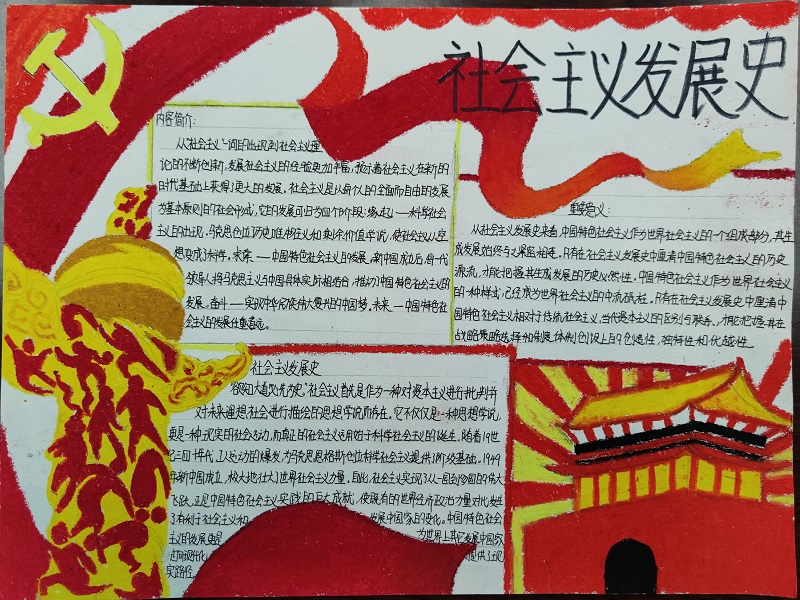 社会主义发展史
内容简介:
从"社会主义"一词的出现到社会主义理
论的不断创新,发展社会主义的经验更加丰富,预示着社会主义在新的
时代基础上获得了更大的发展。社会主义是以每个人的全面而自由的发展
为基本原则的社会形式,它的发展可归为四个阶段:缘起——科学社会
主义的出现,马克思创立历史唯物主义和剩余价值学说,使社会主义从空
想变成了科学。求索——中国特色社会主义的发展,新中国成立后,每一代
领导人将马克思主义与中国具体实际相结合,推动中国特色社会主义的
发展。奋斗——实现中华民族伟大复兴的中国梦。未来——中国特色社
会主义的发展任重道远。
重要意义:
从社会主义发展史来看,中国特色社会主义作为世界社会主义的一个组成部分,其生
成发展始终与之紧密相连。只有在社会主义发展史中厘清中国特色社会主义的历史
源流,才能把握其生成发展的历史必然性。中国特色社会主义作为世界社会主义
的一种样式,已经成为世界社会主义的中流砥柱。只有在社会主义发展史中厘清中
国特色社会主义相对于传统社会主义、当代资本主义的区别与联系,才能把握其在
战略策略选择和制度体制创设上的创造性、独特性和优越性。
社会主义发展史
"欲知大道,必先为史。"社会主义首先是作为一种对资本主义进行批判并
对未来理想社会进行描绘的思想学说而存在。它不仅仅是一种思想学说,
更是一种现实的社会运动,而真正的社会主义运用始于科学社会主义的诞生。随着19世
纪三四十年代,工人运动的爆发,为马克思恩格斯创立科学社会主义提供了阶级基础。1949
年新中国成立,极大地壮大了世界社会主义力量。自此,社会主义实现了从一国到多国的伟大
飞跃。正是中国特色社会主义实践的巨大成就,使既有的世界经济政治力量对比发生
了有利于社会主义和 发展中国家的变化。中国特色社会
主义的发展更是 为世界上其它发展中国家
走向现代化 提供了现
实路径。